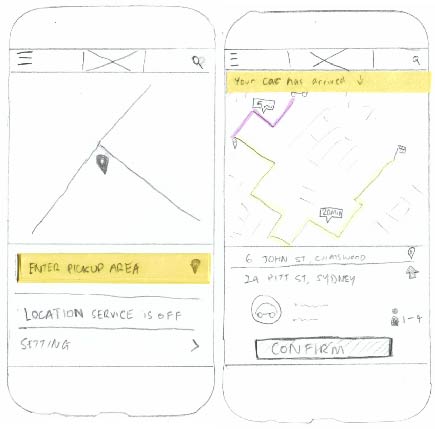 ENTER PICKUP AREA
LOCATION SERVICE IS OFF
SETTING
Your car has arrived
5
20MIN
6 JOHN ST, CHATSWOOD
29 PITT ST, SYDNEY
1-4
CONFIRM